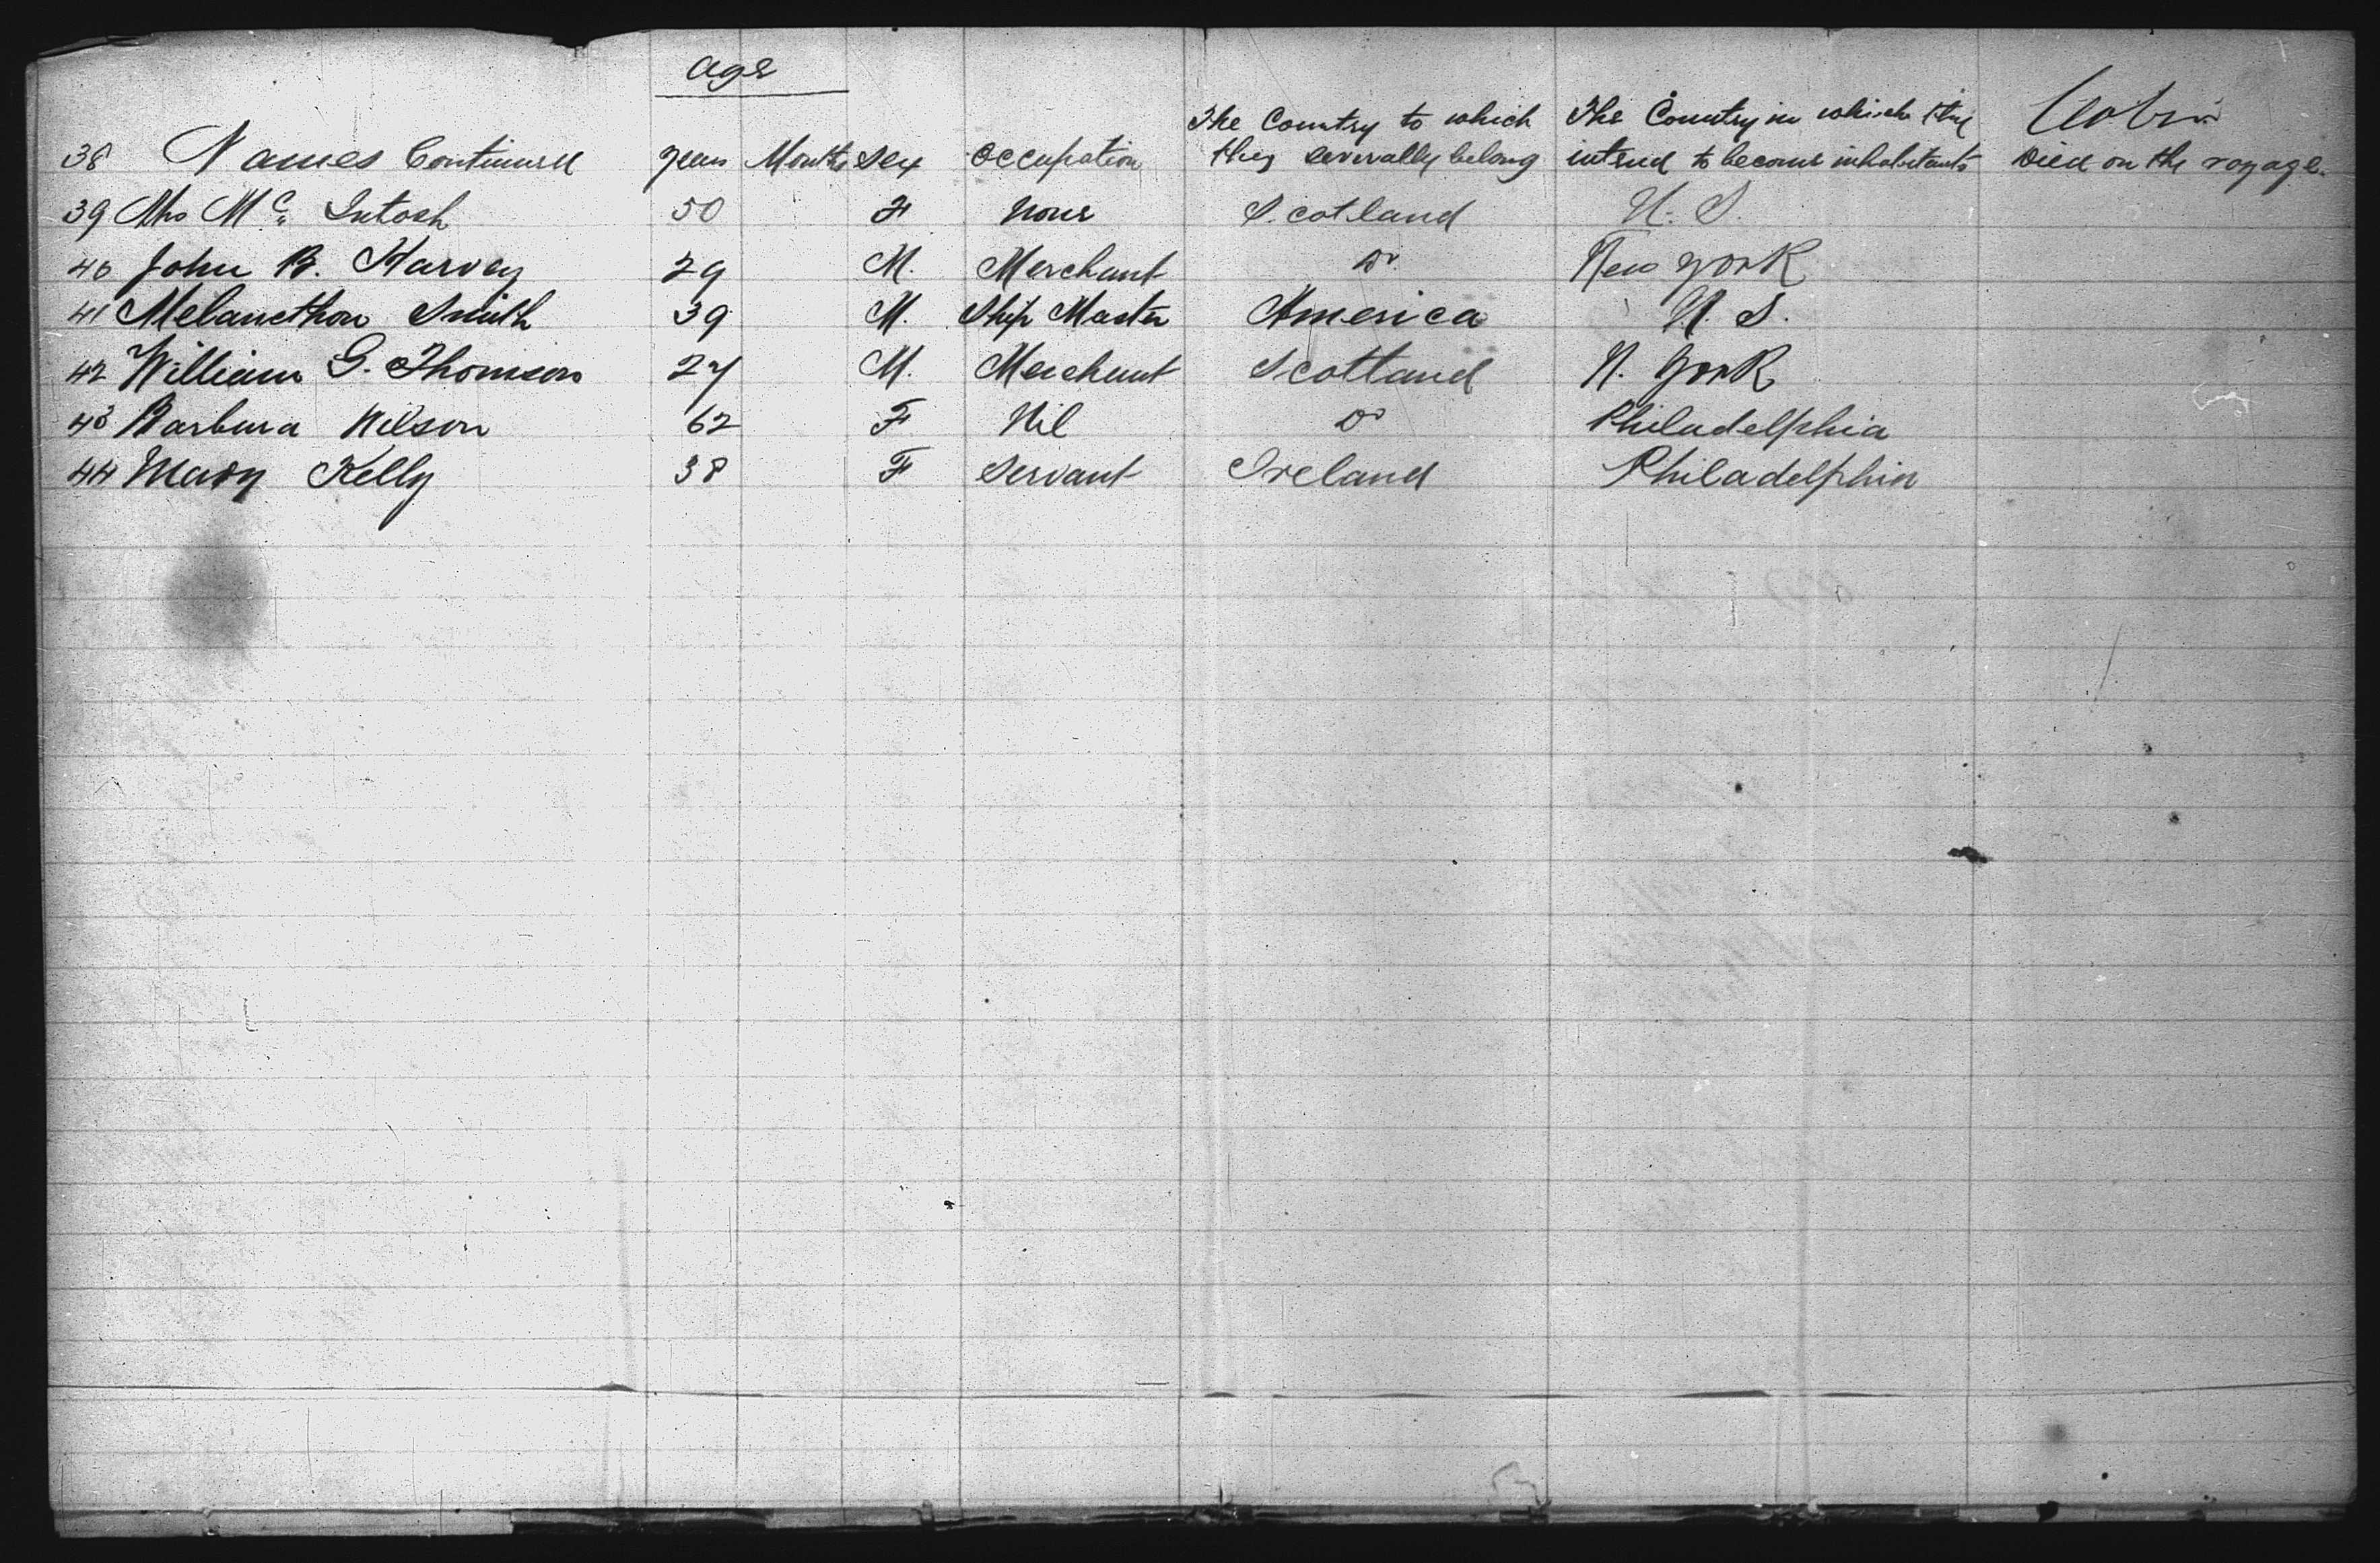 Age
The Country to which The Country in which they Cabin
38 Names Continued years Months Sex Occupation they severally belong intend to become inhabitants Died on the voyage.
39 Mrs Mc Intosh 50 F None Scotland U. S.
40 John B. Harvey 29 M. Merchant Do New York
41 Melancthon Smith 39 M. Ship Master America U. S.
42 William G. Thomson 27 M. Merchant Scotland N. York
43 Barbara Wilson 62 F Nil Do Philadelphia
44 Mary Kelly 38 F Servant Ireland Philadelphia